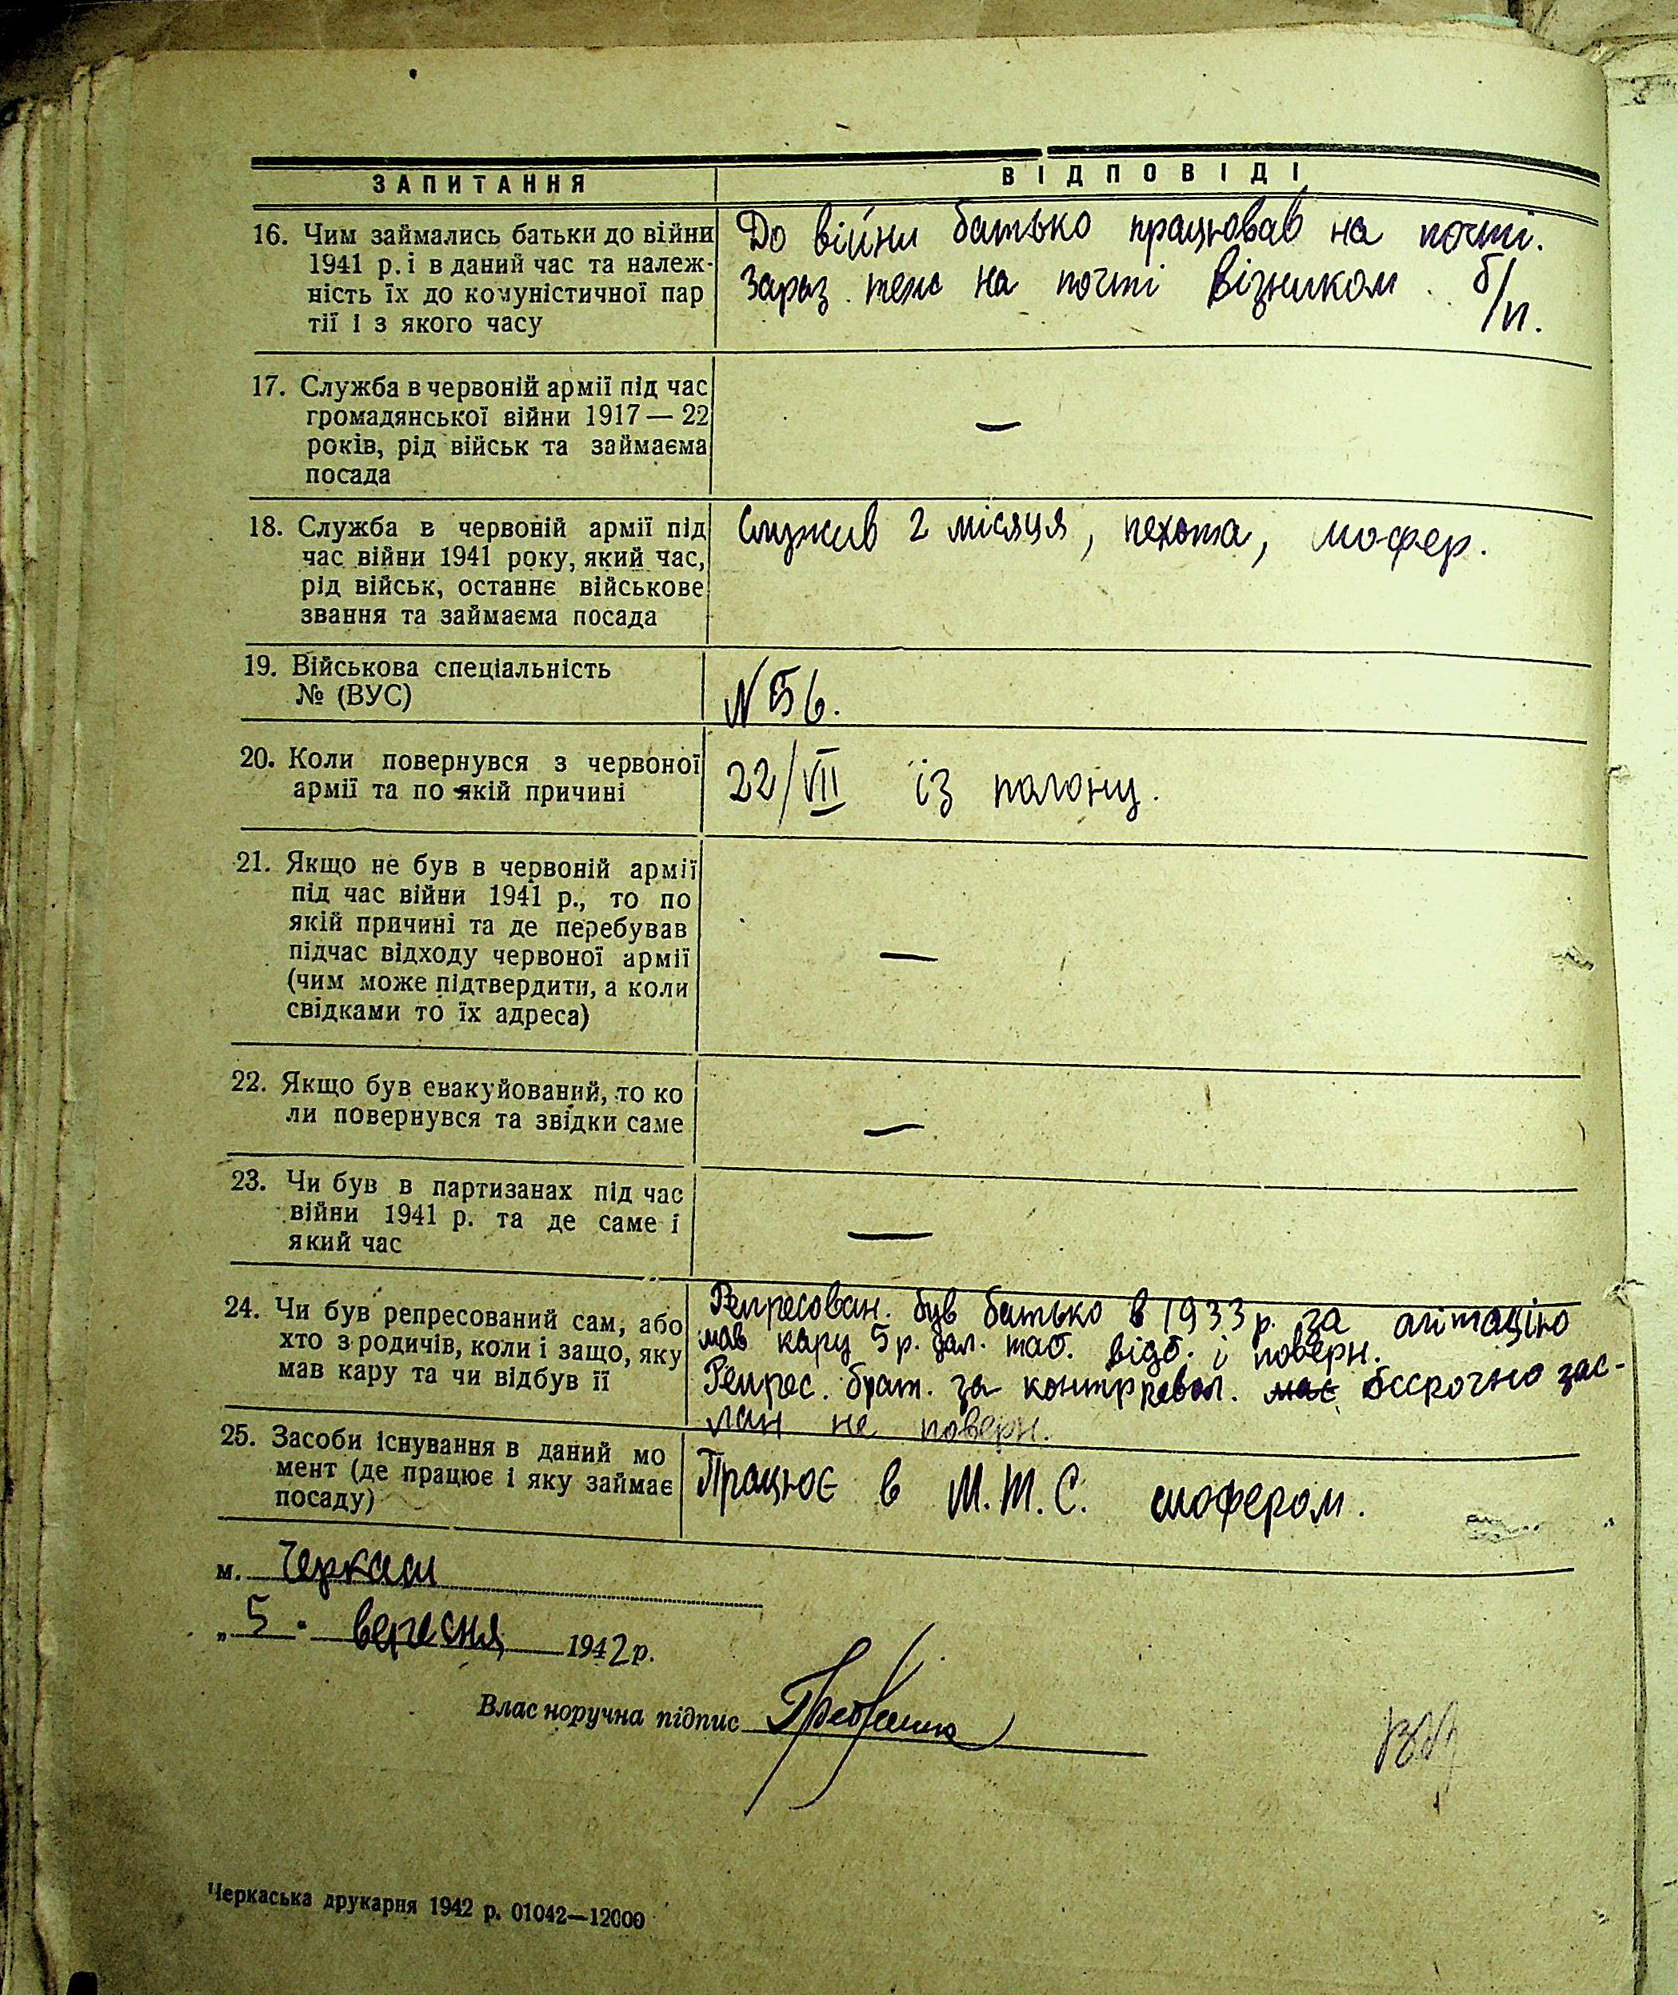 ЗАПИТАННЯ
ВІДПОВІДІ
16. Чим займались батьки до війни
1941 р. і в даний час та належ-
ність їх до комуністичної пар
тії і з якого часу
До війни батько працював на почті.
Зараз теж на почті візником. б/п.
17. Служба в червоній армії під час
громадянської війни 1917 — 22
років, рід військ та займаєма
посада
—
18. Служба в червоній армії під
час війни 1941 року, який час,
рід військ, останнє військове
звання та займаєма посада
Служив 2 місяця, пехота, шофер.
19. Військова спеціальність
№ (ВУС)
N 56.
20. Коли повернувся з червоної
армії та по якій причині
22/VII із полону.
21. Якщо не був в червоній армії
під час війни 1941 р., то по
якій причині та де перебував
підчас відходу червоної армії
(чим може підтвердити, а коли
свідками то їх адреса)
—
22. Якщо був евакуйований, то ко
ли повернувся та звідки саме
—
23. Чи був в партизанах під час
війни 1941 р. та де саме і
який час
—
24. Чи був репресований сам, або
хто з родичів, коли і защо, яку
мав кару та чи відбув її
Репресован. був батько в 1933 р. за агітацію
мав кару 5 р. дал. таб. відб. і поверн.
Репрес. брат. за контрревол. має бссрочно зас-
лан не поверн.
25. Засоби існування в даний мо
мент (де працює і яку займає
посаду)
Працює в М.Т.С. шофером.
м. Черкаси
„ 5 " вересня 1942 р.
Власноручна підпис
Черкаська друкарня 1942 р. 01042—12000